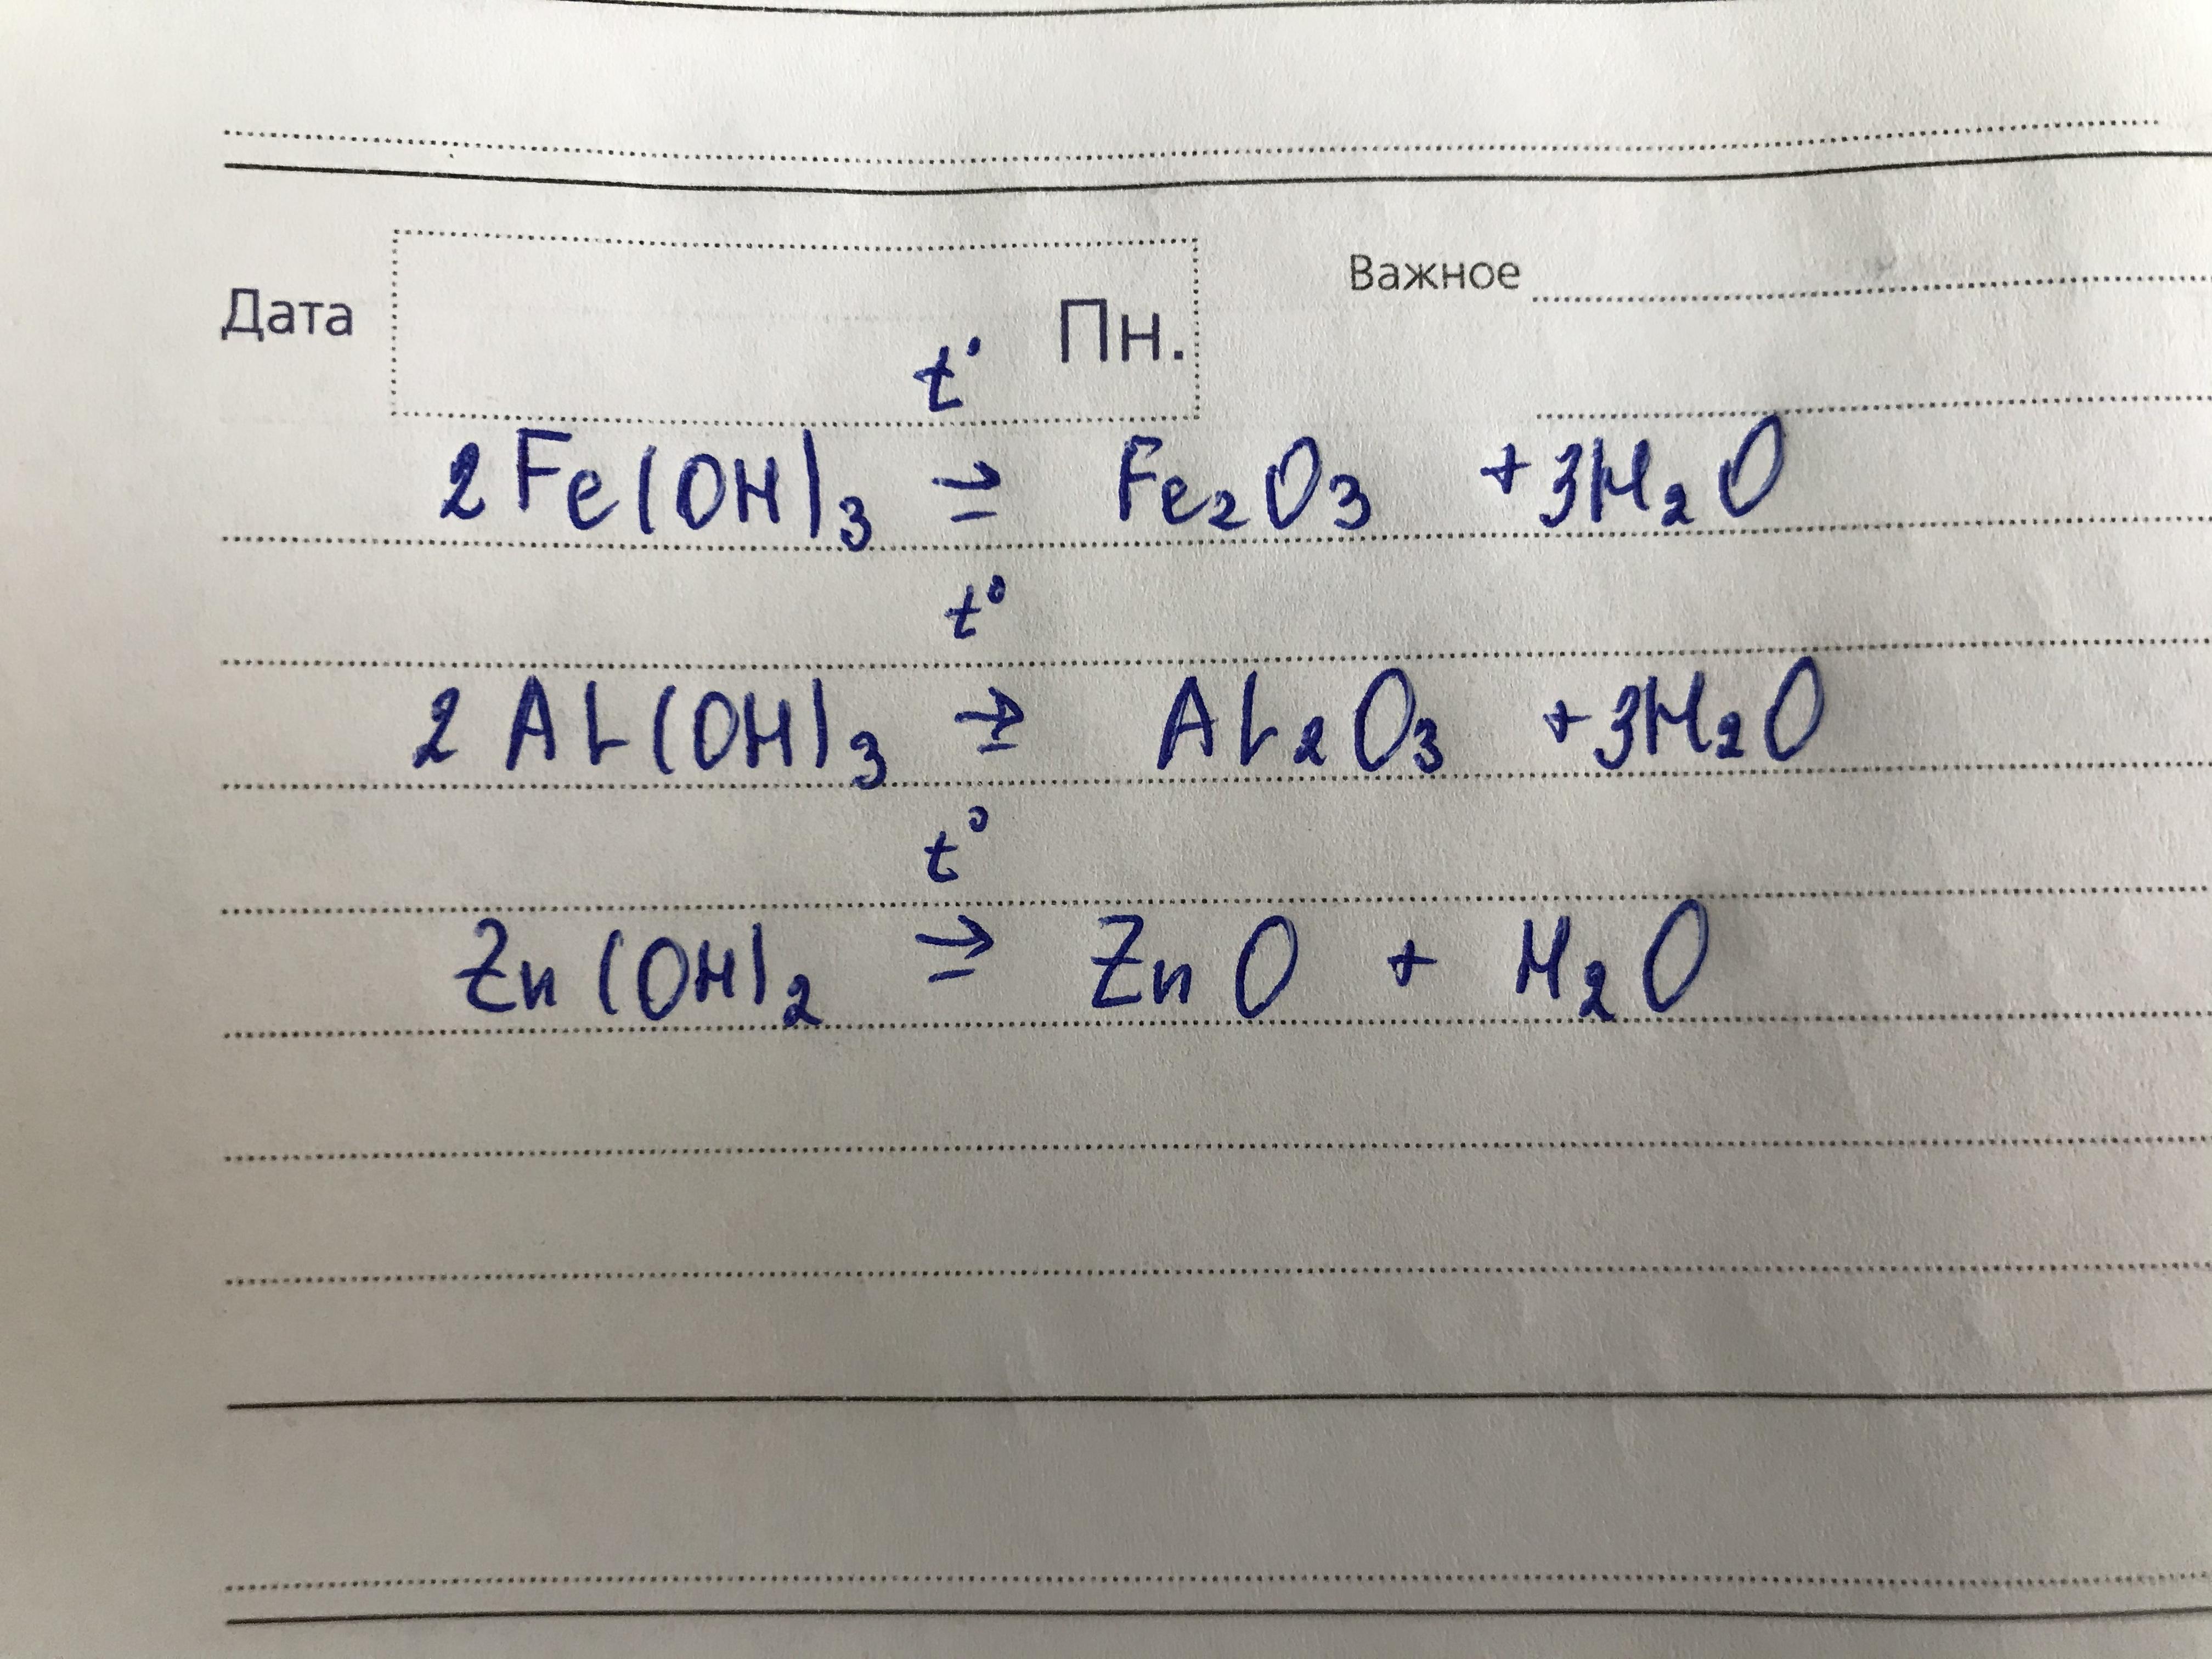 Дата Пн. Важное
t°
2Fe(OH)₃ ⇒ Fe₂O₃ +3H₂O
t°
2Al(OH)₃ ⇒ Al₂O₃ +3H₂O
t°
Zn(OH)₂ ⇒ ZnO + H₂O